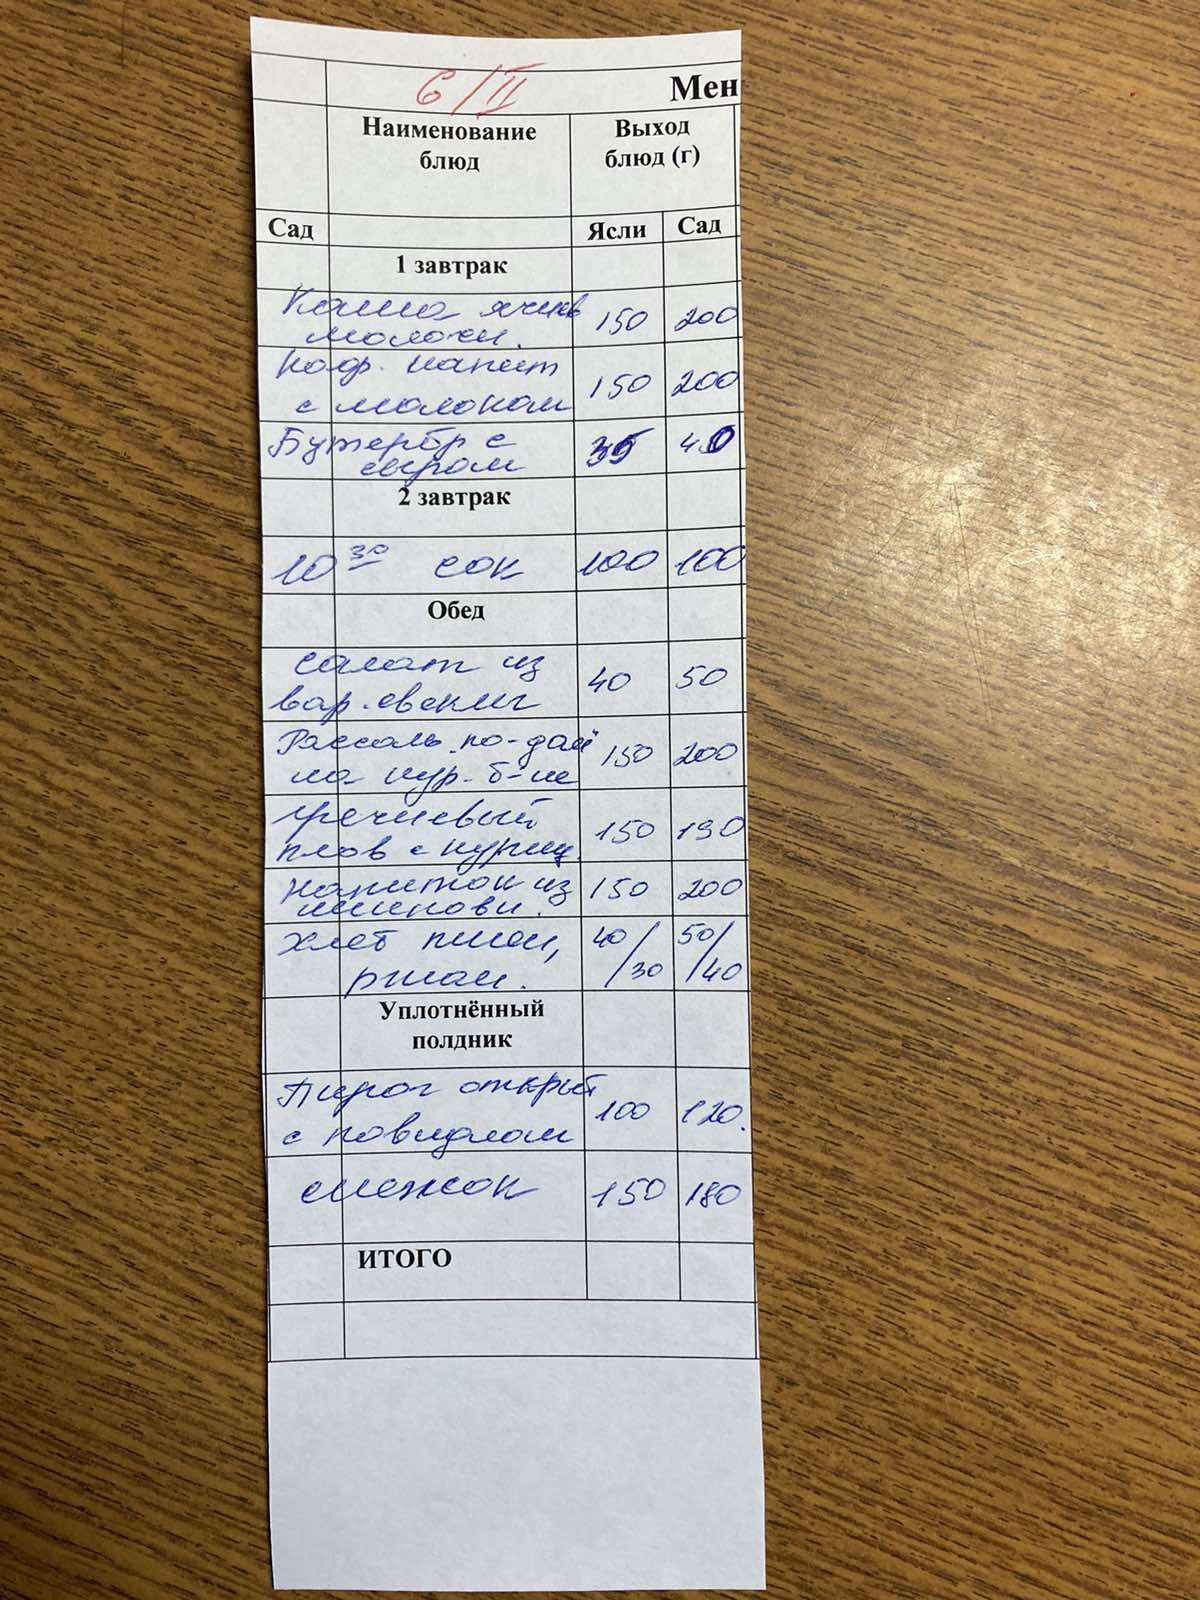 6/II
Мен
Наименование
блюд
Выход
блюд (г)
Сад Ясли Сад
1 завтрак
Каша ячнев
молочн. 150 200
Коф. напит
с молоком 150 200
Бутербр с
сыром 35 40
2 завтрак
10 30 сок 100 100
Обед
Салат из
вар. свеклы 40 50
по-дом
на кур. б-не 150 200
Гречневый
плов с куриц. 150 190
Напиток из
шиповн. 150 200
Хлеб пшен, 40/30 50/40
ржан.
Уплотнённый
полдник
Пирог открыт
с повидлом 100 120.
снежок 150 180
ИТОГО